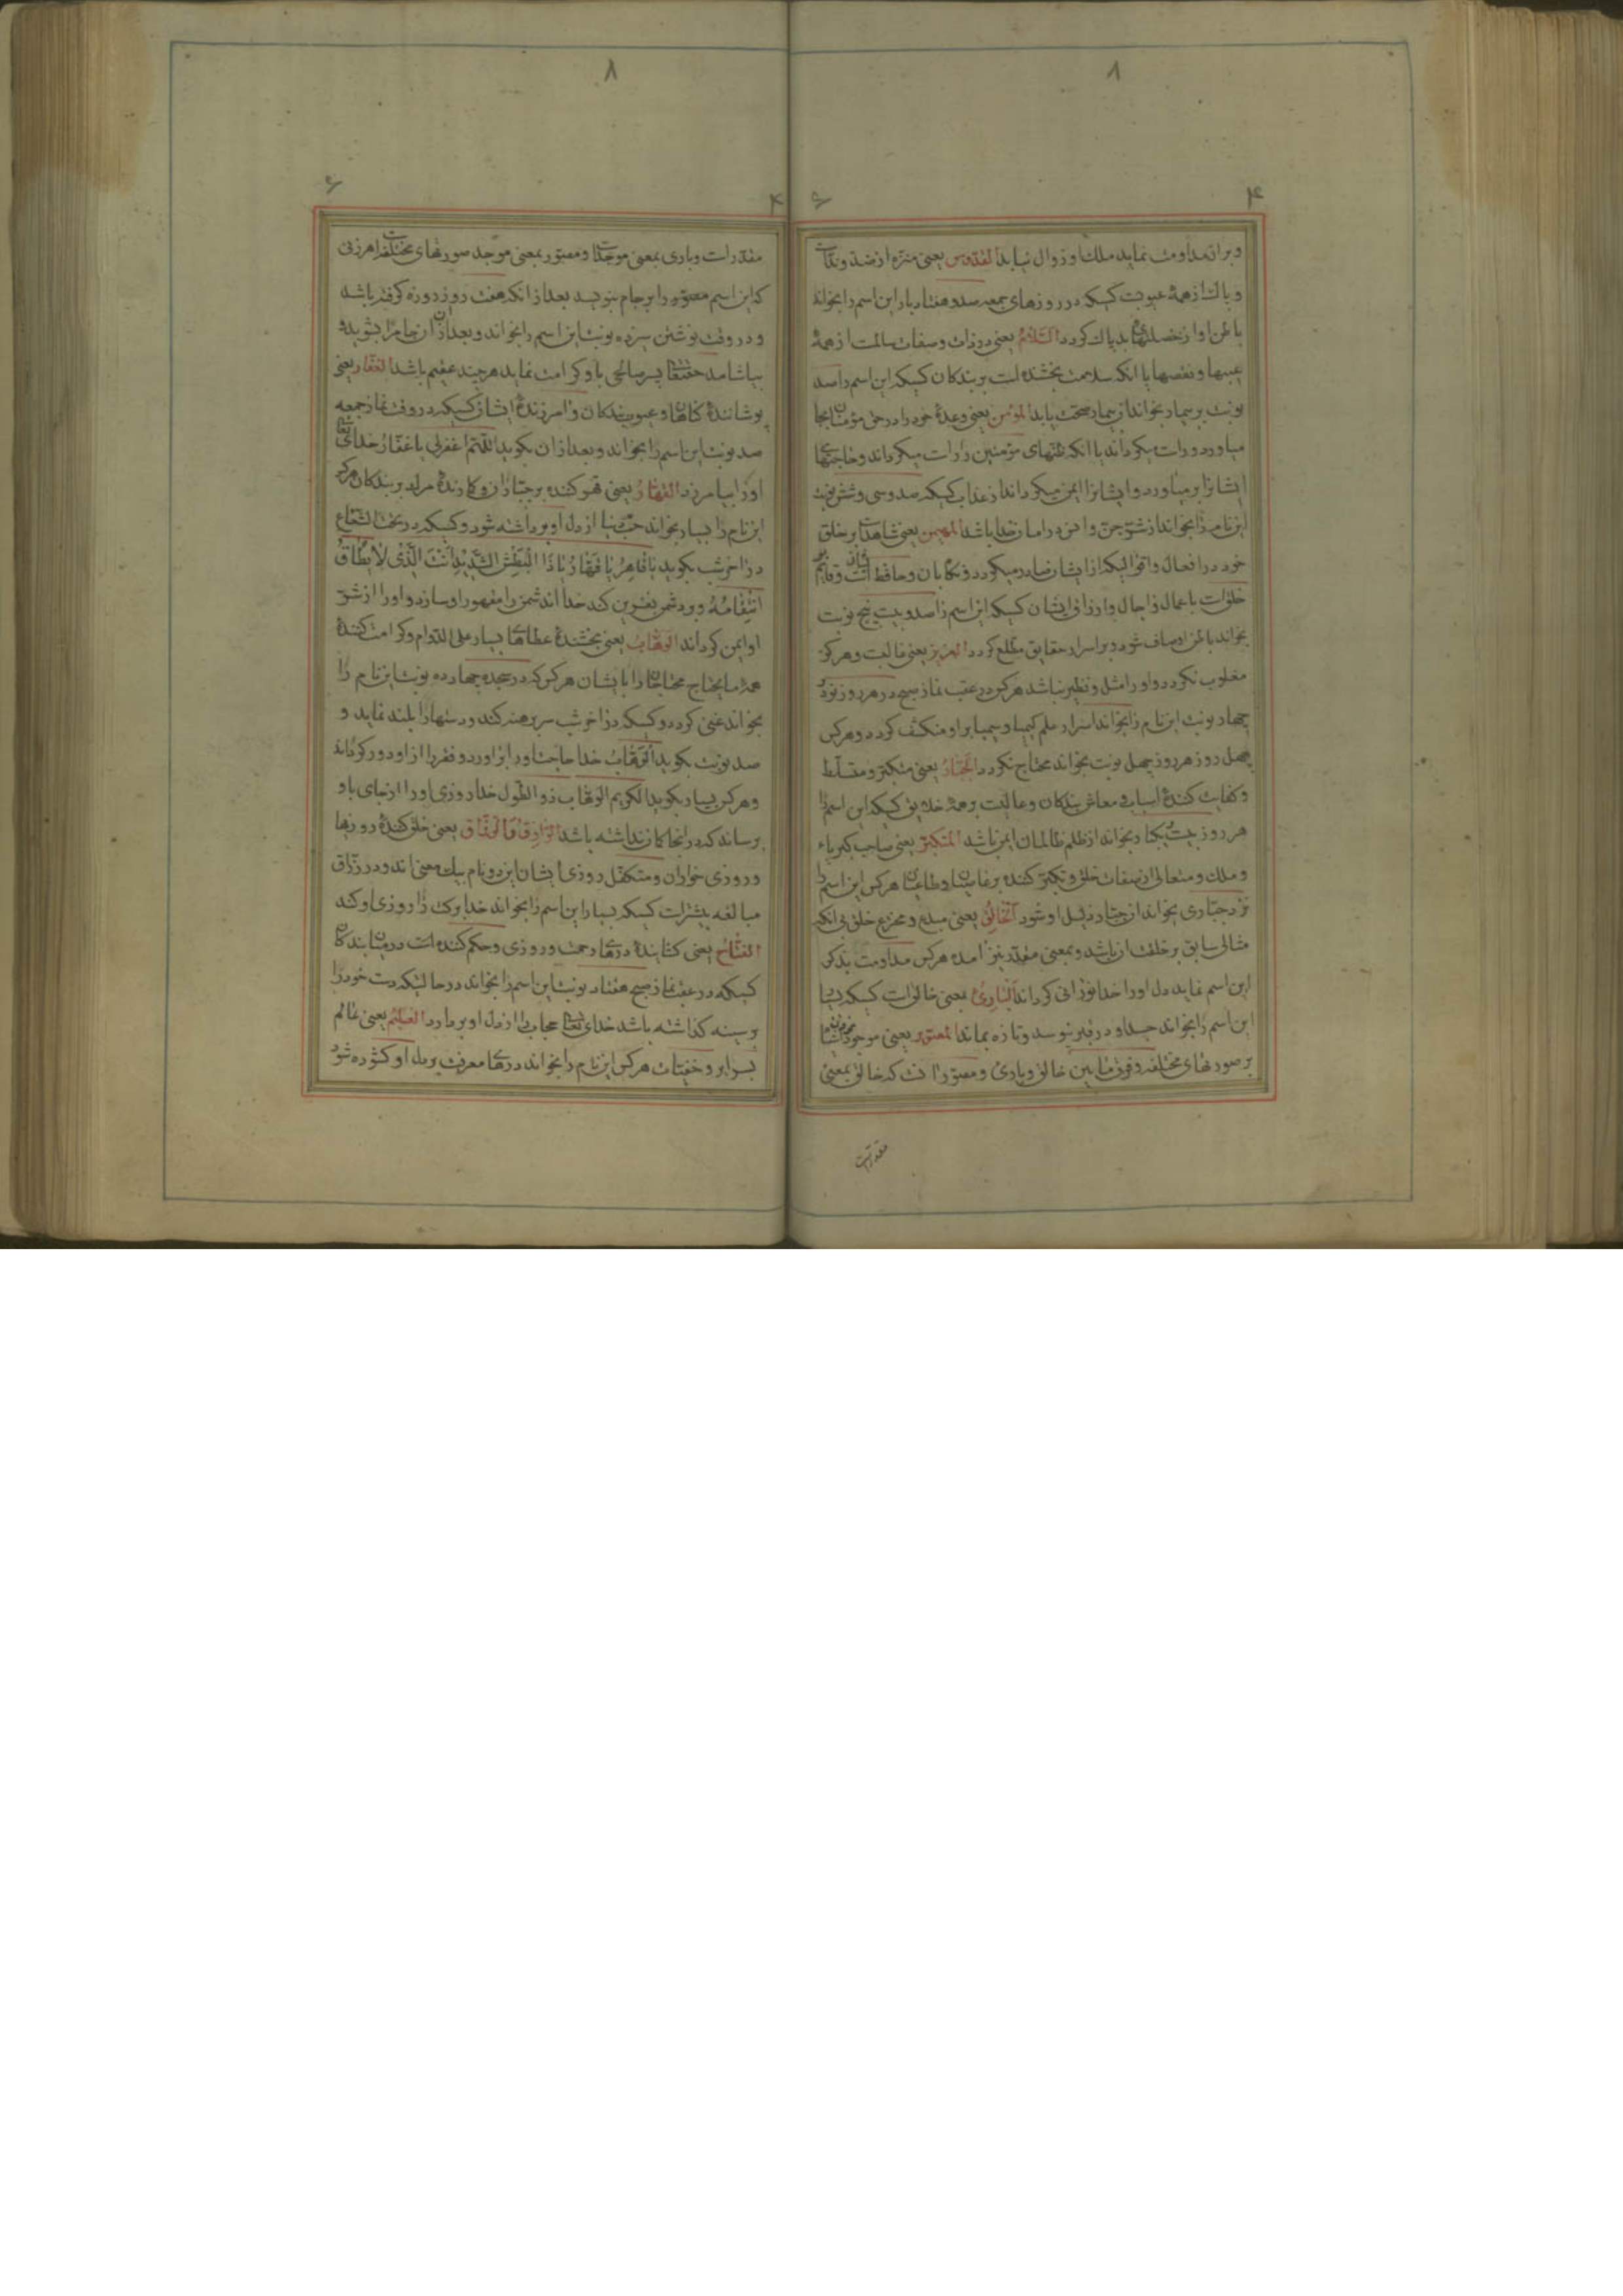 ۸
۴
۶
و بران مداومت نماید ملک او زوال نیابد القدوس یعنی منزه از ضد و ند است
و پاک از همهٔ عیوبت کسیکه در روزهای جمعه صد و هفتاد بار این اسم را بخواند
باطن او از خصلتهای بد پاک کردد السلام یعنی در ذات و صفات سالمت از همهٔ
عیبها و نقصها یا انکه سلامت بخشنده است بر بندکان کسیکه این اسم را صد
نوبت بر بیمار بخواند از بیمار صحت یابد المؤمن یعنی وعدهٔ خود را در حق مؤمنان بجا
میاورد و راست میکرداند یا انکه ظنهای مؤمنین را راست میکرداند و حاجتهای
ایشانرا بر میاورد و ایشانرا ایمن میکرداند از عذاب کسیکه صد و سی و شش نوبت
این نام را بخواند از شر جن و انس در امان خدا باشد المهیمن یعنی شاهد است بر خلق
خود در افعال و اقوالیکه از ایشان صادر میکردد و نکاهبان و حافظ است و قایم بر
خلق است باعمال و اجال و ارزاق ایشان کسیکه این اسم را صد و بیست پنج نوبت
بخواند باطن او صاف شود و بر اسرار حقایق مطلع کردد العزیز یعنی غالبت و هرکز
مغلوب نکردد و او را مثل و نظیر نباشد هرکس در عقب نماز صبح در هر روز نود
چهار نوبت این نام را بخواند اسرار علم کیمیا و سیمیا بر او منکشف کردد و هرکس
چهل روز هر روز چهل نوبت بخواند محتاج نکردد الجبار یعنی متکبر و مسلط
و کفایت کنندهٔ اسباب معاش بندکان و عالیت بر همهٔ خلایق کسیکه این اسم را
هر روز بیست یکبار بخواند از ظلم ظالمان ایمن باشد المتکبر یعنی صاحب کبریاء
و ملک و متعالی از صفات خلق و تکبر کننده بر عاصیان و طاغیان هرکس این اسم را
نزد جباری بخواند ان جبار ذلیل او شود الخالق یعنی مبدع و مخترع خلق بی انکه
مثالی سابق بر خلقت ان باشد و بمعنی مقدر نیز امده هرکس مداومت بذکر
این اسم نماید دل او را خدا نورانی کرداند البارئ یعنی خالق است کسیکه بسیار
این اسم را بخواند جسد او در قبر نپوسد و تازه بماند المصور یعنی موجودات
بر صورتهای مختلفه و فرق مابین خالق و بارئ و مصور انست که خالق بمعنی
مقدرست
۸
۴
۶
مقدرات و باری بمعنی موجد است و مصور بمعنی موجد صورتهای مختلفه است هر زنی
که این اسم مصور را بر جام بنویسد بعد از انکه هفت روز روزه کرفته باشد
و در وقت نوشتن سیزده نوبت این اسم را بخواند و بعد از ان جام را بشوید و
بیاشامد حقتعالی پسر صالحی باو کرامت نماید هر چند عقیم باشد الغفار یعنی
پوشانندهٔ کناهان و عیوب بندکان و امرزندهٔ ایشان کسیکه در وقت نماز جمعه
صد نوبت این اسم را بخواند و بعد از ان بکوید اللهم اغفرلی یا غفار خدای تعالی
او را بیامرزد القهار یعنی قهر کننده بر جباران و کارندهٔ مرک بر بندکان هرکه
این نام را بسیار بخواند حب دنیا از دل او برداشته شود و کسیکه در تحت الشعاع
در اخر شب بکوید یا قاهر یا قهار یا ذا البطش الشدید انت الذی لا یطاق
انتقامه و بر دشمن نفرین کند خدا اندشمن را مقهور او سازد و او را از شر
او ایمن کرداند الوهاب یعنی بخشندهٔ عطاهای بسیار علی الدوام و کرامت کنندهٔ
همهٔ ما یحتاج محتاجان را بایشان هرکس که در سجده چهارده نوبت این نام را
بخواند غنی کردد و کسیکه در اخر شب سر برهنه کند و دستها را بلند نماید و
صد نوبت بکوید الوهاب خدا حاجت او را براورد و فقر را از او دور کرداند
و هرکس بسیار بکوید الکریم الوهاب ذو الطول خدا روزی او را از جای باو
برساند که در انجا کمان نداشته باشد الرازق و الرزاق یعنی خلق کنندهٔ روزیها
و روزی خواران و متکفل روزی ایشان این دو نام بیک معنی اند و در رزاق
مبالغه بیشترات کسیکه بسیار این اسم را بخواند خدا برکت را روزی او کند
الفتاح یعنی کشایندهٔ درهای رحمت و روزی و حکم کننده است در میان بندکان
کسیکه در عقب نماز صبح هفتاد نوبت این اسم را بخواند در حالتیکه دست خود را
بر سینه کذاشته باشد خدای تعالی حجاب را از دل او بردارد العلیم یعنی عالم
بسرایر و خفیات هرکس این نام را بخواند درهای معرفت بر دل او کشوده شود